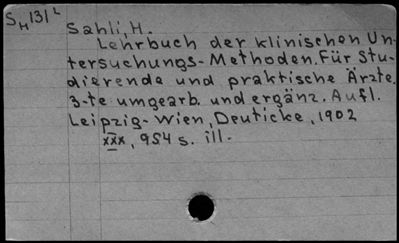 SH131L
Sahli, H.
Lehrbuch der klinischen Un-
tersuchungs-Methoden. Für Stu-
dierende und praktische Ärzte.
3-te umgearb. und ergänz. Aufl.
Leipzig-Wien, Deuticke, 1902
xxx, 954 s. ill.